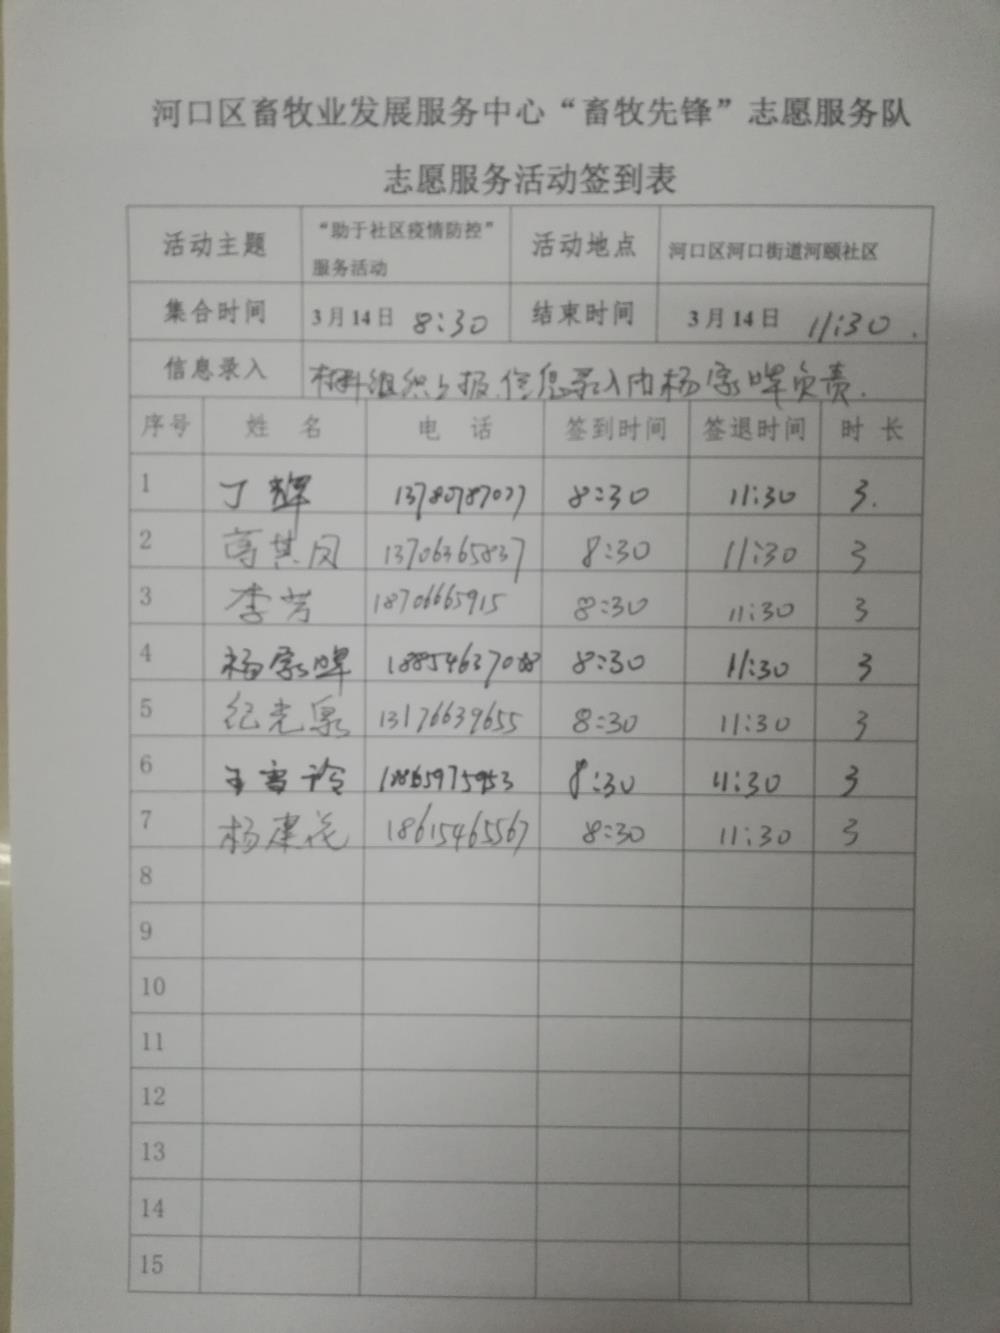 河口区畜牧业发展服务中心“畜牧先锋”志愿服务队
志愿服务活动签到表
活动主题 “助于社区疫情防控”服务活动 活动地点 河口区河口街道河颐社区
集合时间 3月14日 8:30 结束时间 3月14日 11:30.
信息录入 材料组织上报、信息录入由杨家晖负责.
序号 姓 名 电 话 签到时间 签退时间 时 长
1 丁辉 13780787077 8:30 11:30 3.
2 高其凤 13706365837 8:30 11:30 3
3 李芳 18706665915 8:30 11:30 3
4 杨家晖 8:30 11:30 3
5 纪光泉 13176639655 8:30 11:30 3
6 王雪玲 18865975953 8:30 11:30 3
7 杨建花 18615465567 8:30 11:30 3
8
9
10
11
12
13
14
15